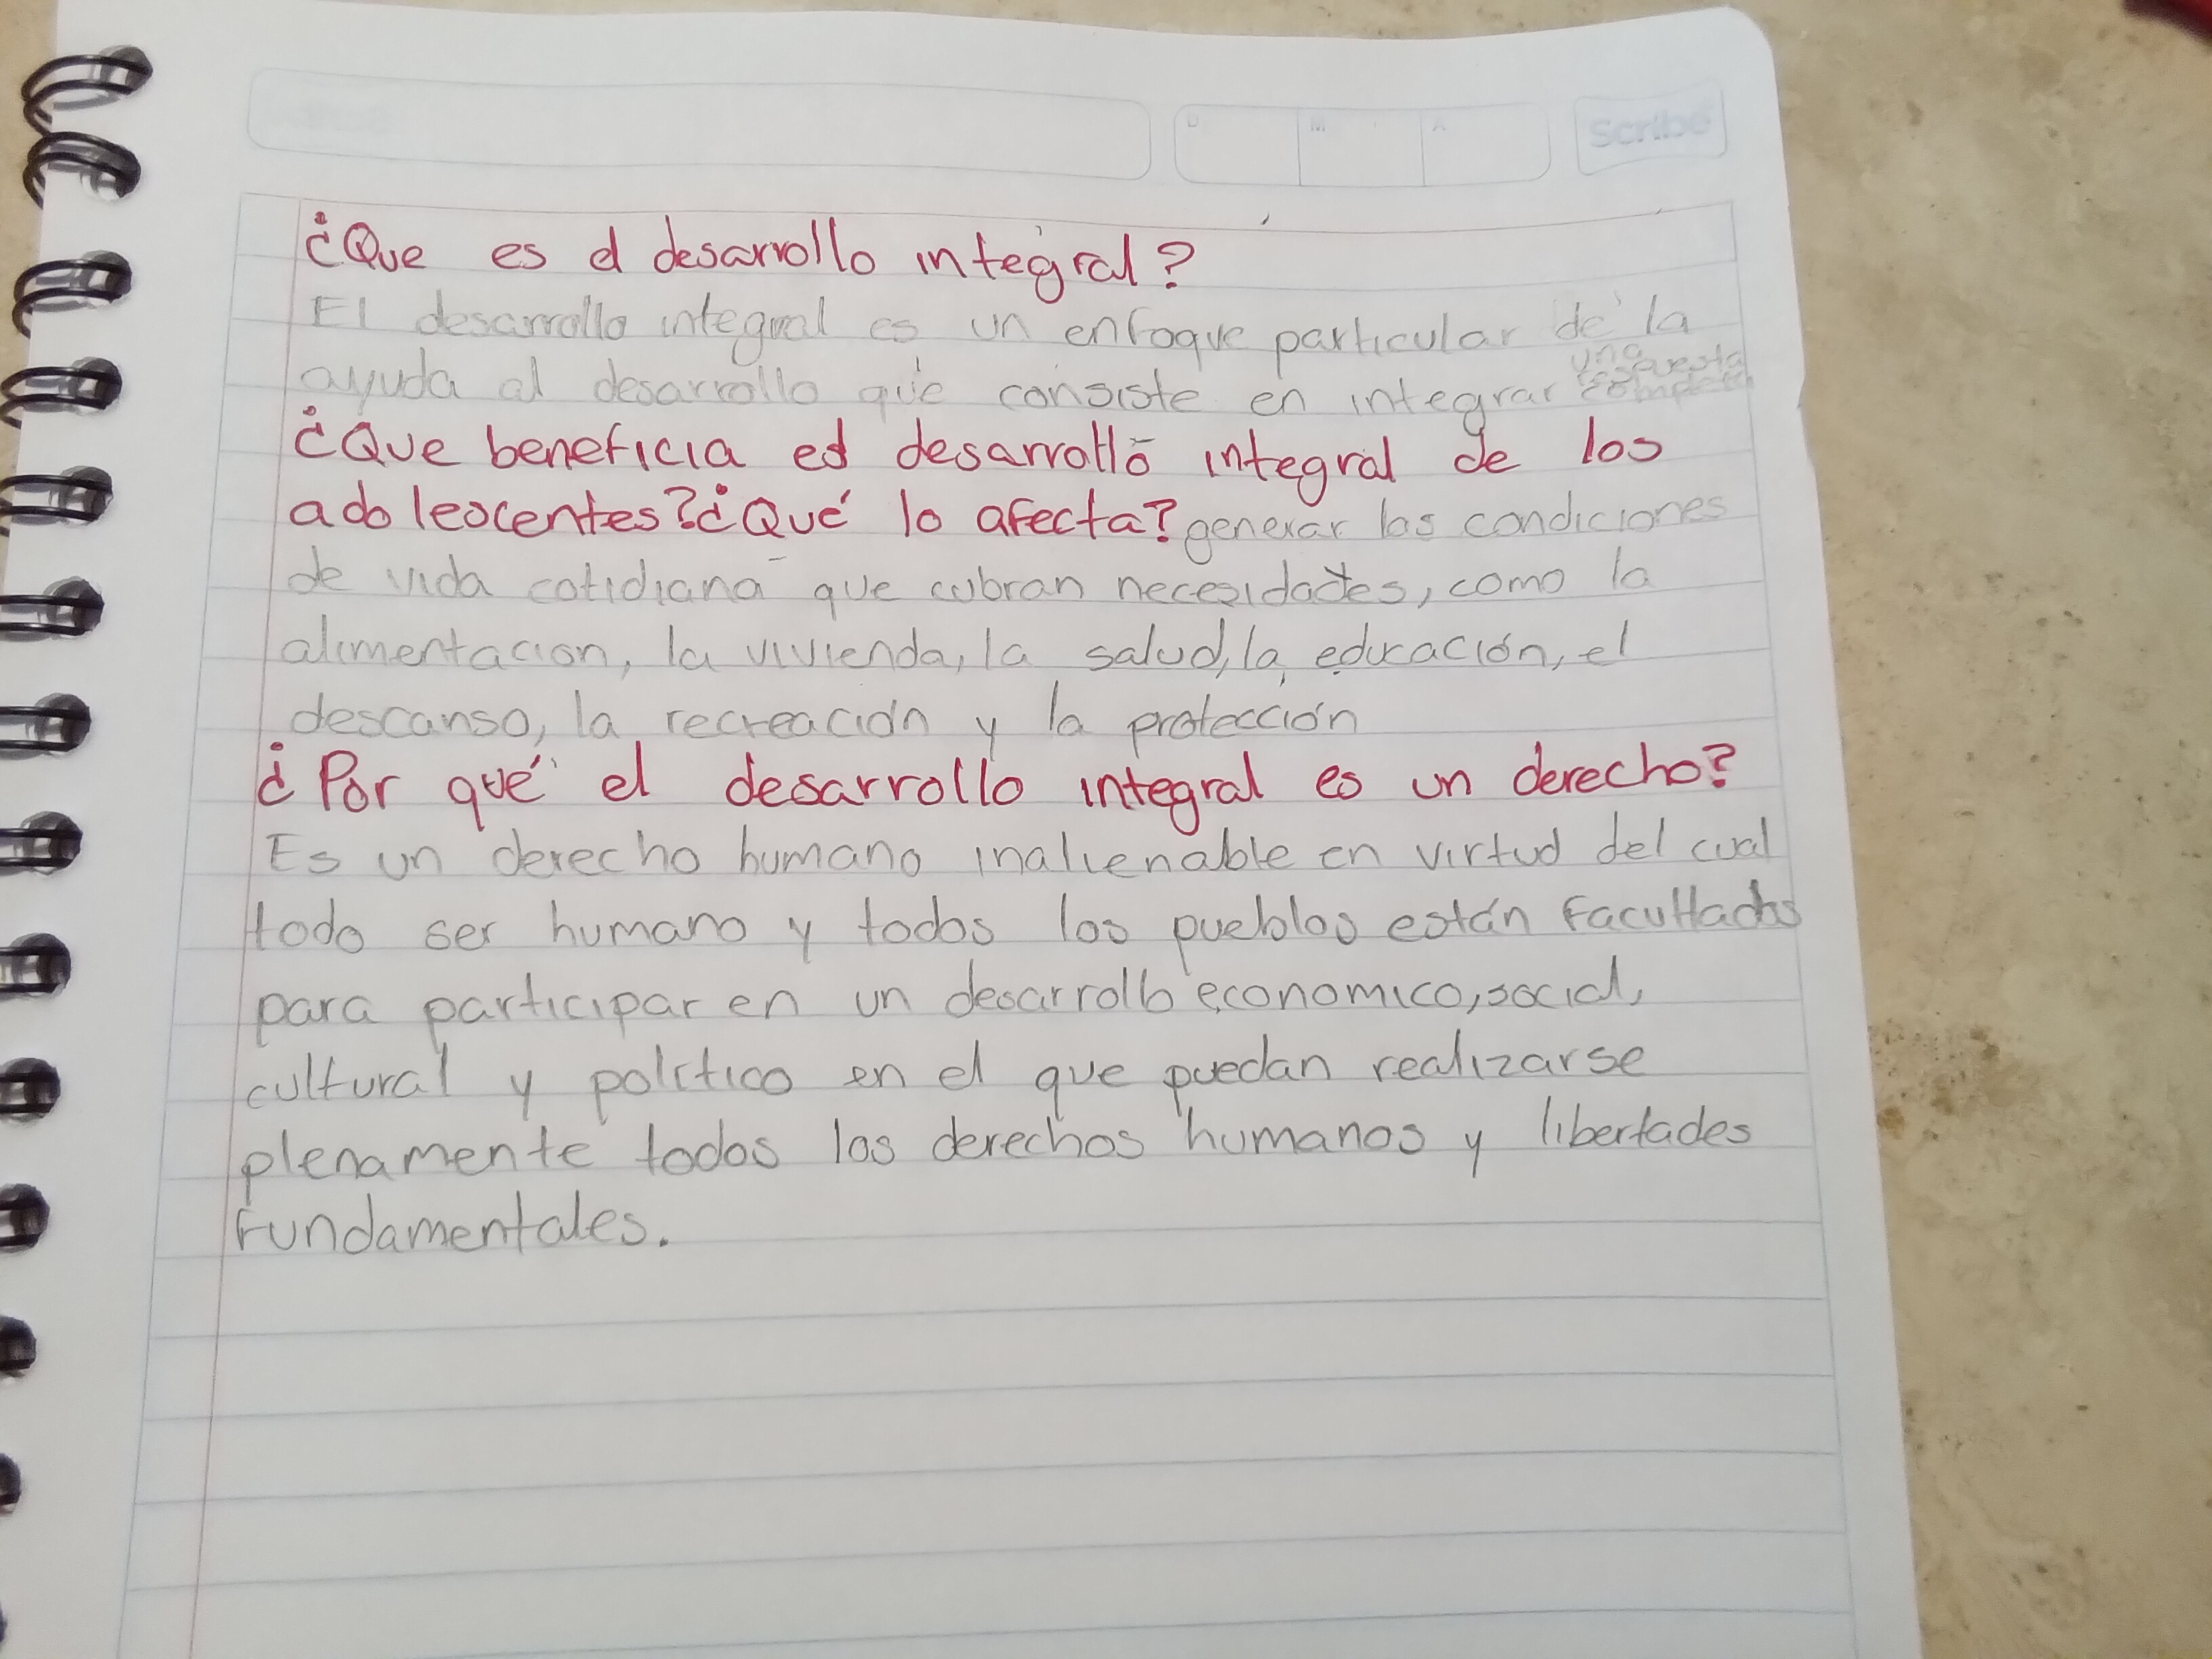 Scribe
D M A
¿Que es el desarrollo integral?
El desarrollo integral es un enfoque particular de la
ayuda al desarrollo que consiste en integrar una respuesta completa
¿Que beneficia el desarrollo integral de los
adolescentes? ¿Qué lo afecta? generar las condiciones
de vida cotidiana que cubran necesidades, como la
alimentacion, la vivienda, la salud, la educación, el
descanso, la recreación y la protección
¿Por qué el desarrollo integral es un derecho?
Es un derecho humano inalienable en virtud del cual
todo ser humano y todos los pueblos están facultados
para participar en un desarrollo economico, social,
cultural y político en el que puedan realizarse
plenamente todos los derechos humanos y libertades
fundamentales.